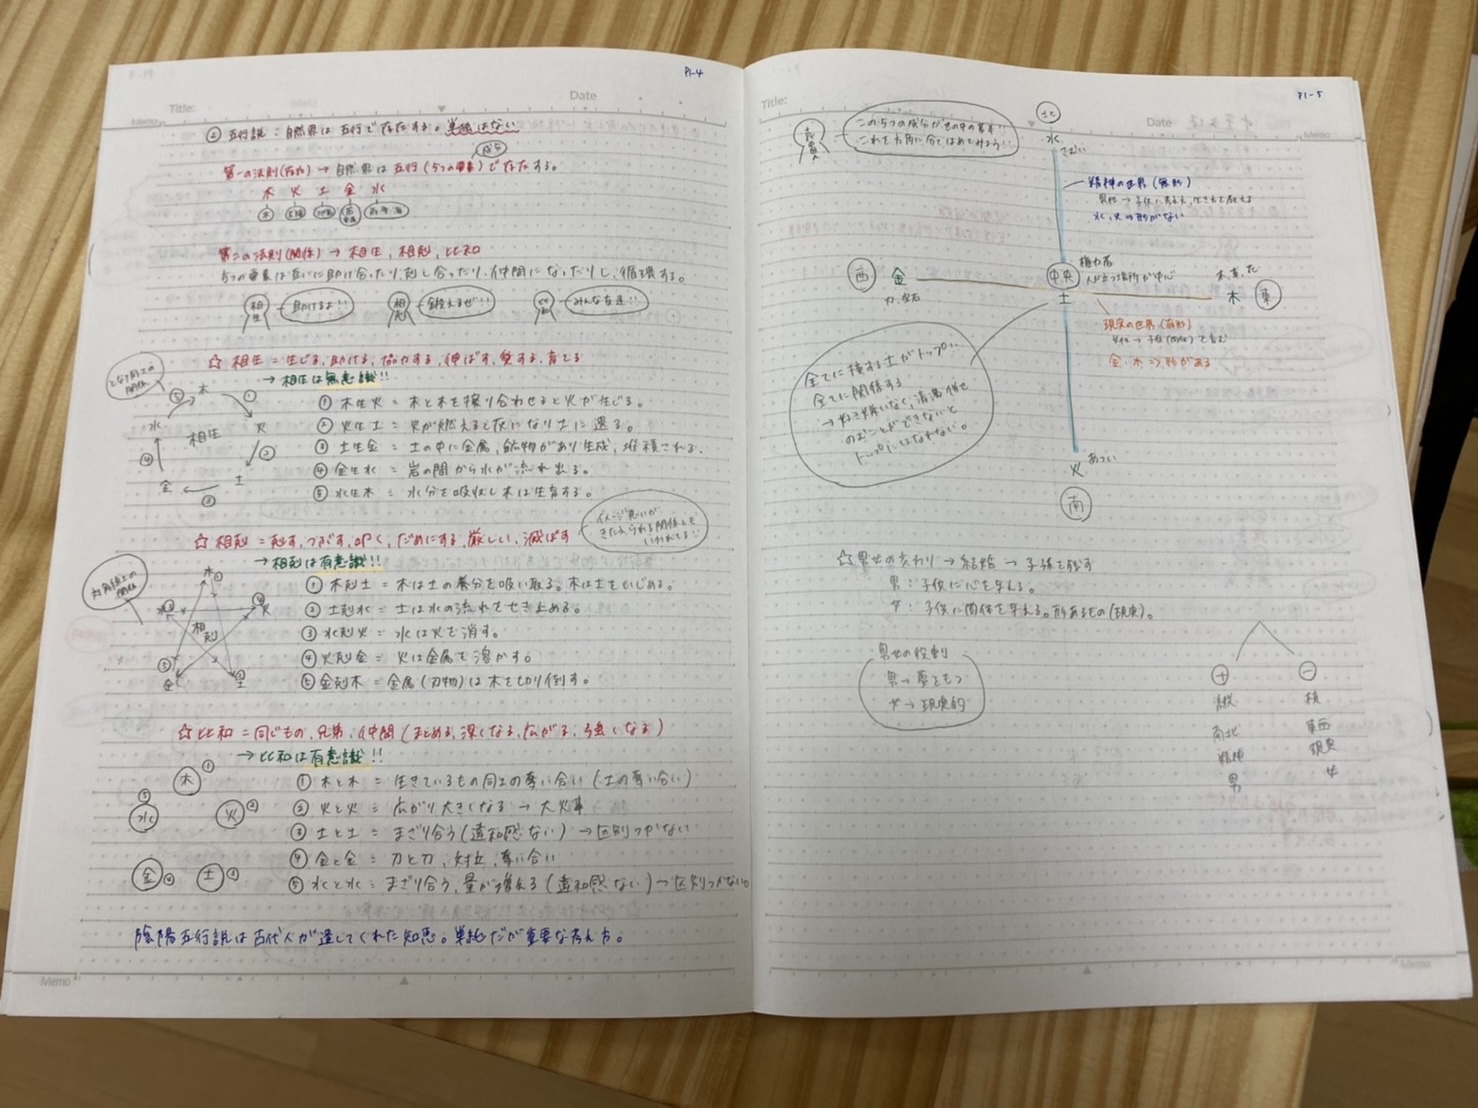 P1-4
Title:
Date
Memo
② 五行説：自然界は五行で存在する。単純ではない
第一の法則(存在) → 自然界は五行(5つの要素)で存在する。
成分
木 火 土 金 水
木 太陽 地面 海
第二の法則(関係) → 相生、相剋、比和
5つの要素は互いに助け合ったり、剋し合ったり、仲間になったりし、循環する。
相生 助けるよ!!
相剋 鍛えるぜ!!
比和 みんな友達!!
☆ 相生 = 生じる、助ける、協力する、伸ばす、愛する、育てる
→ 相生は無意識!!
となり同士の関係
木 ① 火 ② 土 ③ 金 ④ 水 ⑤
相生
① 木生火 = 木と木を擦り合わせると火が生じる。
② 火生土 = 火が燃えると灰になり土に還る。
③ 土生金 = 土の中に金属、鉱物があり生成、堆積される。
④ 金生水 = 岩の間から水が流れ出る。
⑤ 水生木 = 水分を吸収し木は生育する。
イメージ悪いが
きたえられる関係とも
いわれてる!!
☆ 相剋 = 剋す、つぶす、叩く、だめにする、厳しい、滅ぼす
→ 相剋は有意識!!
対角線上の関係
木 火 土 金 水
相剋
① 木剋土 = 木は土の養分を吸い取る。木は土をいじめる。
② 土剋水 = 土は水の流れをせき止める。
③ 水剋火 = 水は火を消す。
④ 火剋金 = 火は金属を溶かす。
⑤ 金剋木 = 金属(刃物)は木を切り倒す。
☆ 比和 = 同じもの、兄弟、仲間(まとめる、深くなる、広がる、強くなる)
→ 比和は有意識!!
木① 火② 土③ 金④ 水⑤
① 木と木 = 生きているもの同士の奪い合い(土の奪い合い)
② 火と火 = 広がり大きくなる → 大火事
③ 土と土 = まざり合う(違和感ない) → 区別つかない
④ 金と金 = 刀と刀、対立、奪い合い
⑤ 水と水 = まざり合う、量が増える(違和感ない) → 区別つかない。
陰陽五行説は古代人が遺してくれた知恵。単純だが重要な考え方。
Memo
P1-5
Title:
Date
Memo
この5つの成分が世の中の基本!!
これを方角に当てはめてみよう!!
北
水 さむい
精神の世界(無形)
男性 → 子供に
水、火は形がない
西 金
刀、宝石
中央
土
権力者
人が立つ場所が中心
木、草、花
木 東
現実の世界(有形)
女性 → 子供(肉体)を産む
金、木 → 形がある
全てに接する土がトップ!!
全てに関係する
→ 好き嫌いなく、清濁併せ
のむことができないと
トップにはなれない。
火 あつい
南
☆ 男女の交わり → 結婚 → 子孫を残す
男：子供に心を与える。
女：子供に肉体を与える。形あるもの(現実)。
男女の役割
男 → 夢をもつ
女 → 現実的
⊕ ⊖
縦 横
南北 東西
精神 現実
男 女
Memo